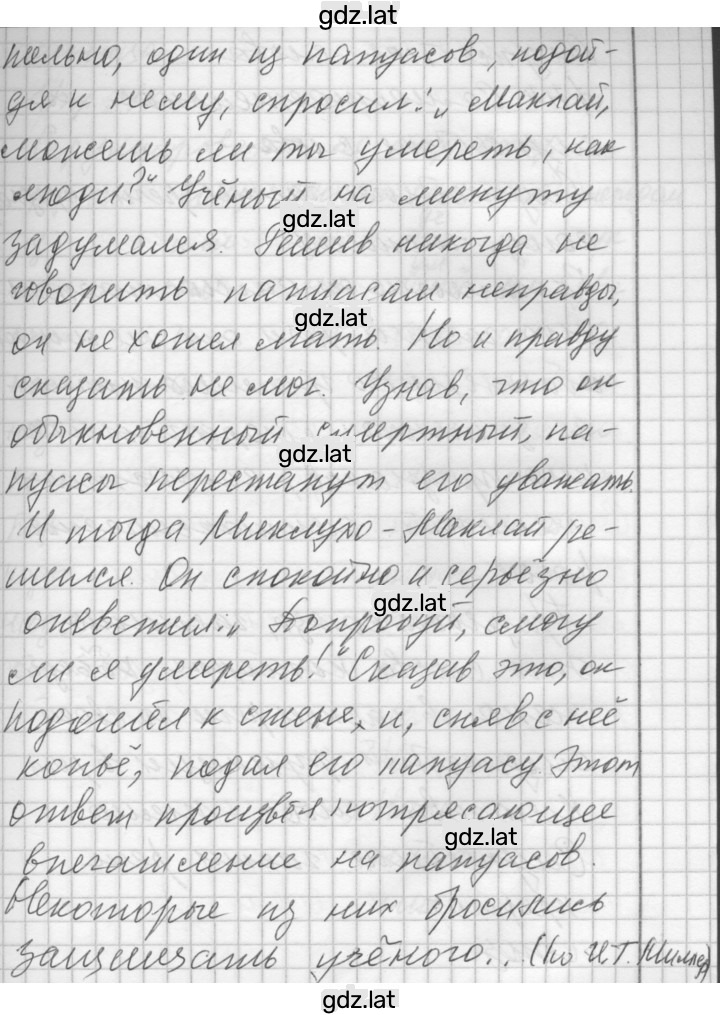 gdz.lat
пально, один из папуасов, подой-
дя к нему, спросил: „Маклай,
можешь ли ты умереть, как
люди?“ Учёный на минуту
gdz.lat
задумался. Решив никогда не
говорить папуасам неправды,
gdz.lat
он не хотел лгать. Но и правду
сказать не мог. Узнав, что он
обыкновенный смертный, па-
gdz.lat
пуасы перестанут его уважать.
И тогда Миклухо-Маклай ре-
шился. Он спокойно и серьёзно
gdz.lat
ответил: „Попробуй, смогу
ли я умереть!“ Сказав это, он
подошёл к стене, и, сняв с неё
копьё, подал его папуасу. Этот
ответ произвёл потрясающее
gdz.lat
впечатление на папуасов.
Некоторые из них бросились
защищать учёного.. (По И.Т.
gdz.lat